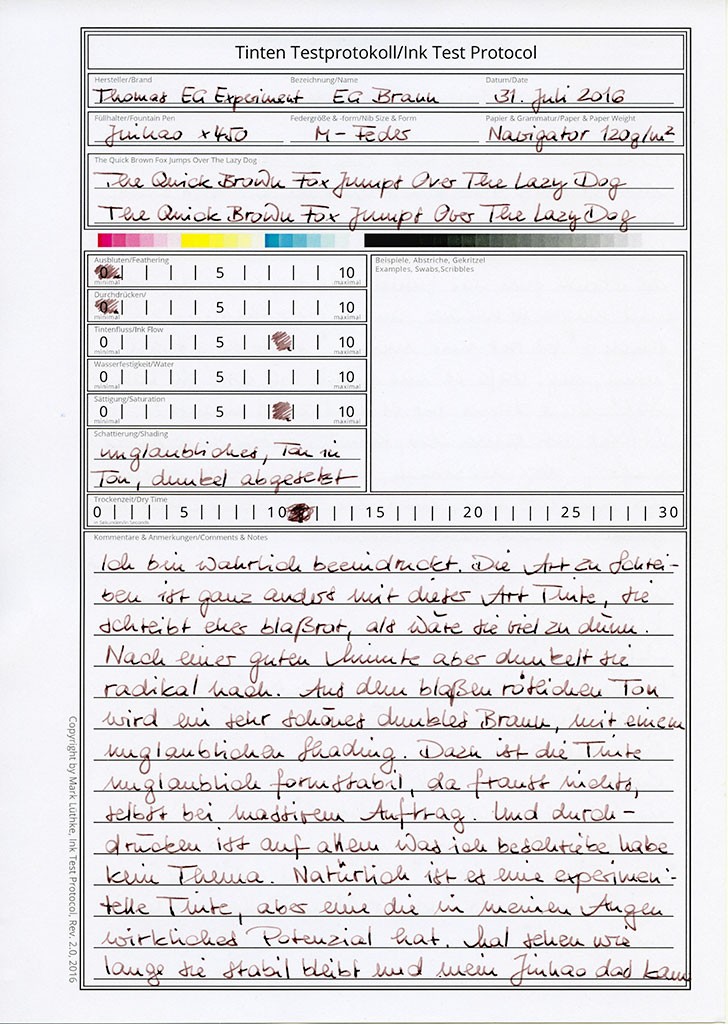 Tinten Testprotokoll/Ink Test Protocol
Hersteller/Brand Bezeichnung/Name Datum/Date
Thomas EG Experiment EG Braun 31. Juli 2016
Füllhalter/Fountain Pen Federgröße & -form/Nib Size & Form Papier & Grammatur/Paper & Paper Weight
Jinhao x450 M-Feder Navigator 120g/m²
The Quick Brown Fox Jumps Over The Lazy Dog
The Quick Brown Fox Jumps Over The Lazy Dog
The Quick Brown Fox Jumps Over The Lazy Dog
Ausbluten/Feathering
0 5 10
minimal maximal
Durchdrücken/
0 5 10
minimal maximal
Tintenfluss/Ink Flow
0 5 10
minimal maximal
Wasserfestigkeit/Water
0 5 10
minimal maximal
Sättigung/Saturation
0 5 10
minimal maximal
Schattierung/Shading
unglaubliches, Ton in
Ton, dunkel abgesetzt
Beispiele, Abstriche, Gekritzel
Examples, Swabs,Scribbles
Trockenzeit/Dry Time
0 5 10 15 20 25 30
in Sekunden/in Seconds
Kommentare & Anmerkungen/Comments & Notes
Ich bin wahrlich beeindruckt. Die Art zu Schrei-
ben ist ganz anders mit dieser Art Tinte, sie
schreibt eher blaßrot, als wäre sie viel zu dünn.
Nach einer guten Minute aber dunkelt sie
radikal nach. Aus dem blaßen rötlichen Ton
wird ein sehr schönes dunkles Braun, mit einem
unglaublichen Shading. Dazu ist die Tinte
unglaublich formstabil, da franst nichts,
selbst bei massivem Auftrag. Und durch-
drücken ist auf allem was ich beschriebe habe
kein Thema. Natürlich ist es eine experimen-
telle Tinte, aber eine die in meinen Augen
wirkliches Potenzial hat. Mal sehen wie
lange sie stabil bleibt und mein Jinhao das kann
Copyright by Mark Lüthke, Ink Test Protocol, Rev. 2.0, 2016